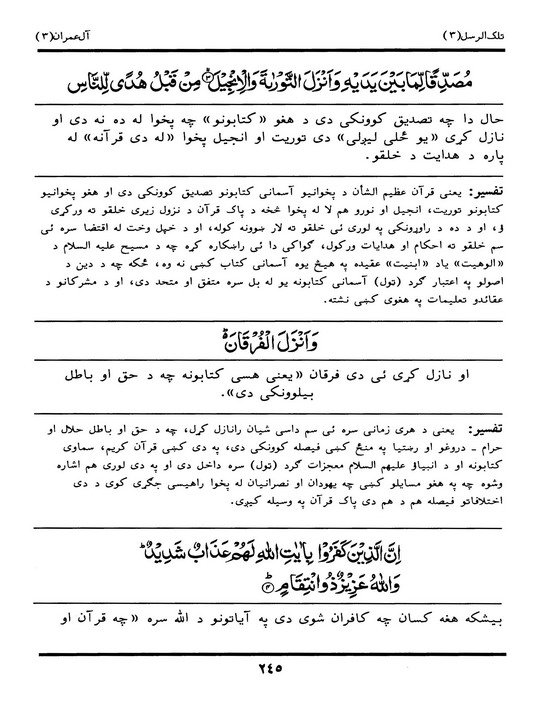 تلک الرسل(٣) آل عمران(٣)
مُصَدِّقًا لِّمَا بَيْنَ يَدَيْهِ وَاَنْزَلَ التَّوْرٰىةَ وَالْاِنْجِيْلَ ۝٣ مِنْ قَبْلُ هُدًى لِّلنَّاسِ
حال دا چه تصدیق کوونکی دی د هغو «کتابونو» چه پخوا له ده نه دی او
نازل کړی «یو ځلی لیږلی» دی توریت او انجیل پخوا «له دی قرآنه» له
پاره د هدایت د خلقو.
تفسیر: یعنی قرآن عظیم الشأن د پخوانیو آسمانی کتابونو تصدیق کوونکی دی او هغو پخوانیو
کتابونو توریت، انجیل او نورو هم لا له پخوا څخه د پاک قرآن د نزول زیری خلقو ته ورکړی
ؤ، او د ده د راوړونکی په لوری ئی خلقو ته لار ښوونه کوله، او د خپل وخت له اقتضا سره ئی
سم خلقو ته احکام او هدایات ورکول، گواکی دا ئی راښکاره کړه چه د مسیح علیه السلام د
«الوهیت» یاد «ابنیت» عقیده په هیڅ یوه آسمانی کتاب کښی نه وه، ځکه چه د دین د
اصولو په اعتبار گرد (ټول) آسمانی کتابونه یو له بل سره متفق او متحد دی، او د مشرکانو د
عقائدو تعلیمات په هغوی کښی نشته.
وَاَنْزَلَ الْفُرْقَانَ ؕ
او نازل کړی ئی دی فرقان «یعنی هسی کتابونه چه د حق او باطل
بیلوونکی دی».
تفسیر: یعنی د هری زمانی سره ئی سم داسی شیان رانازل کړل، چه د حق او باطل حلال او
حرام ـ دروغو او رښتیا په منځ کښی فیصله کوونکی دی، په دی کښی قرآن کریم، سماوی
کتابونه او د انبیاؤ علیهم السلام معجزات گرد (ټول) سره داخل دی او په دی لوری هم اشاره
وشوه چه په هغو مسایلو کښی چه یهودان او نصرانیان له پخوا راهیسی جگړی کوی د دی
اختلافاتو فیصله هم د هم دی پاک قرآن په وسیله کیږی.
اِنَّ الَّذِيْنَ كَفَرُوْا بِاٰيٰتِ اللّٰهِ لَهُمْ عَذَابٌ شَدِيْدٌ ؕ
وَاللّٰهُ عَزِيْزٌ ذُو انْتِقَامٍ ۝٤
بیشکه هغه کسان چه کافران شوی دی په آیاتونو د الله سره «چه قرآن او
٢٤٥